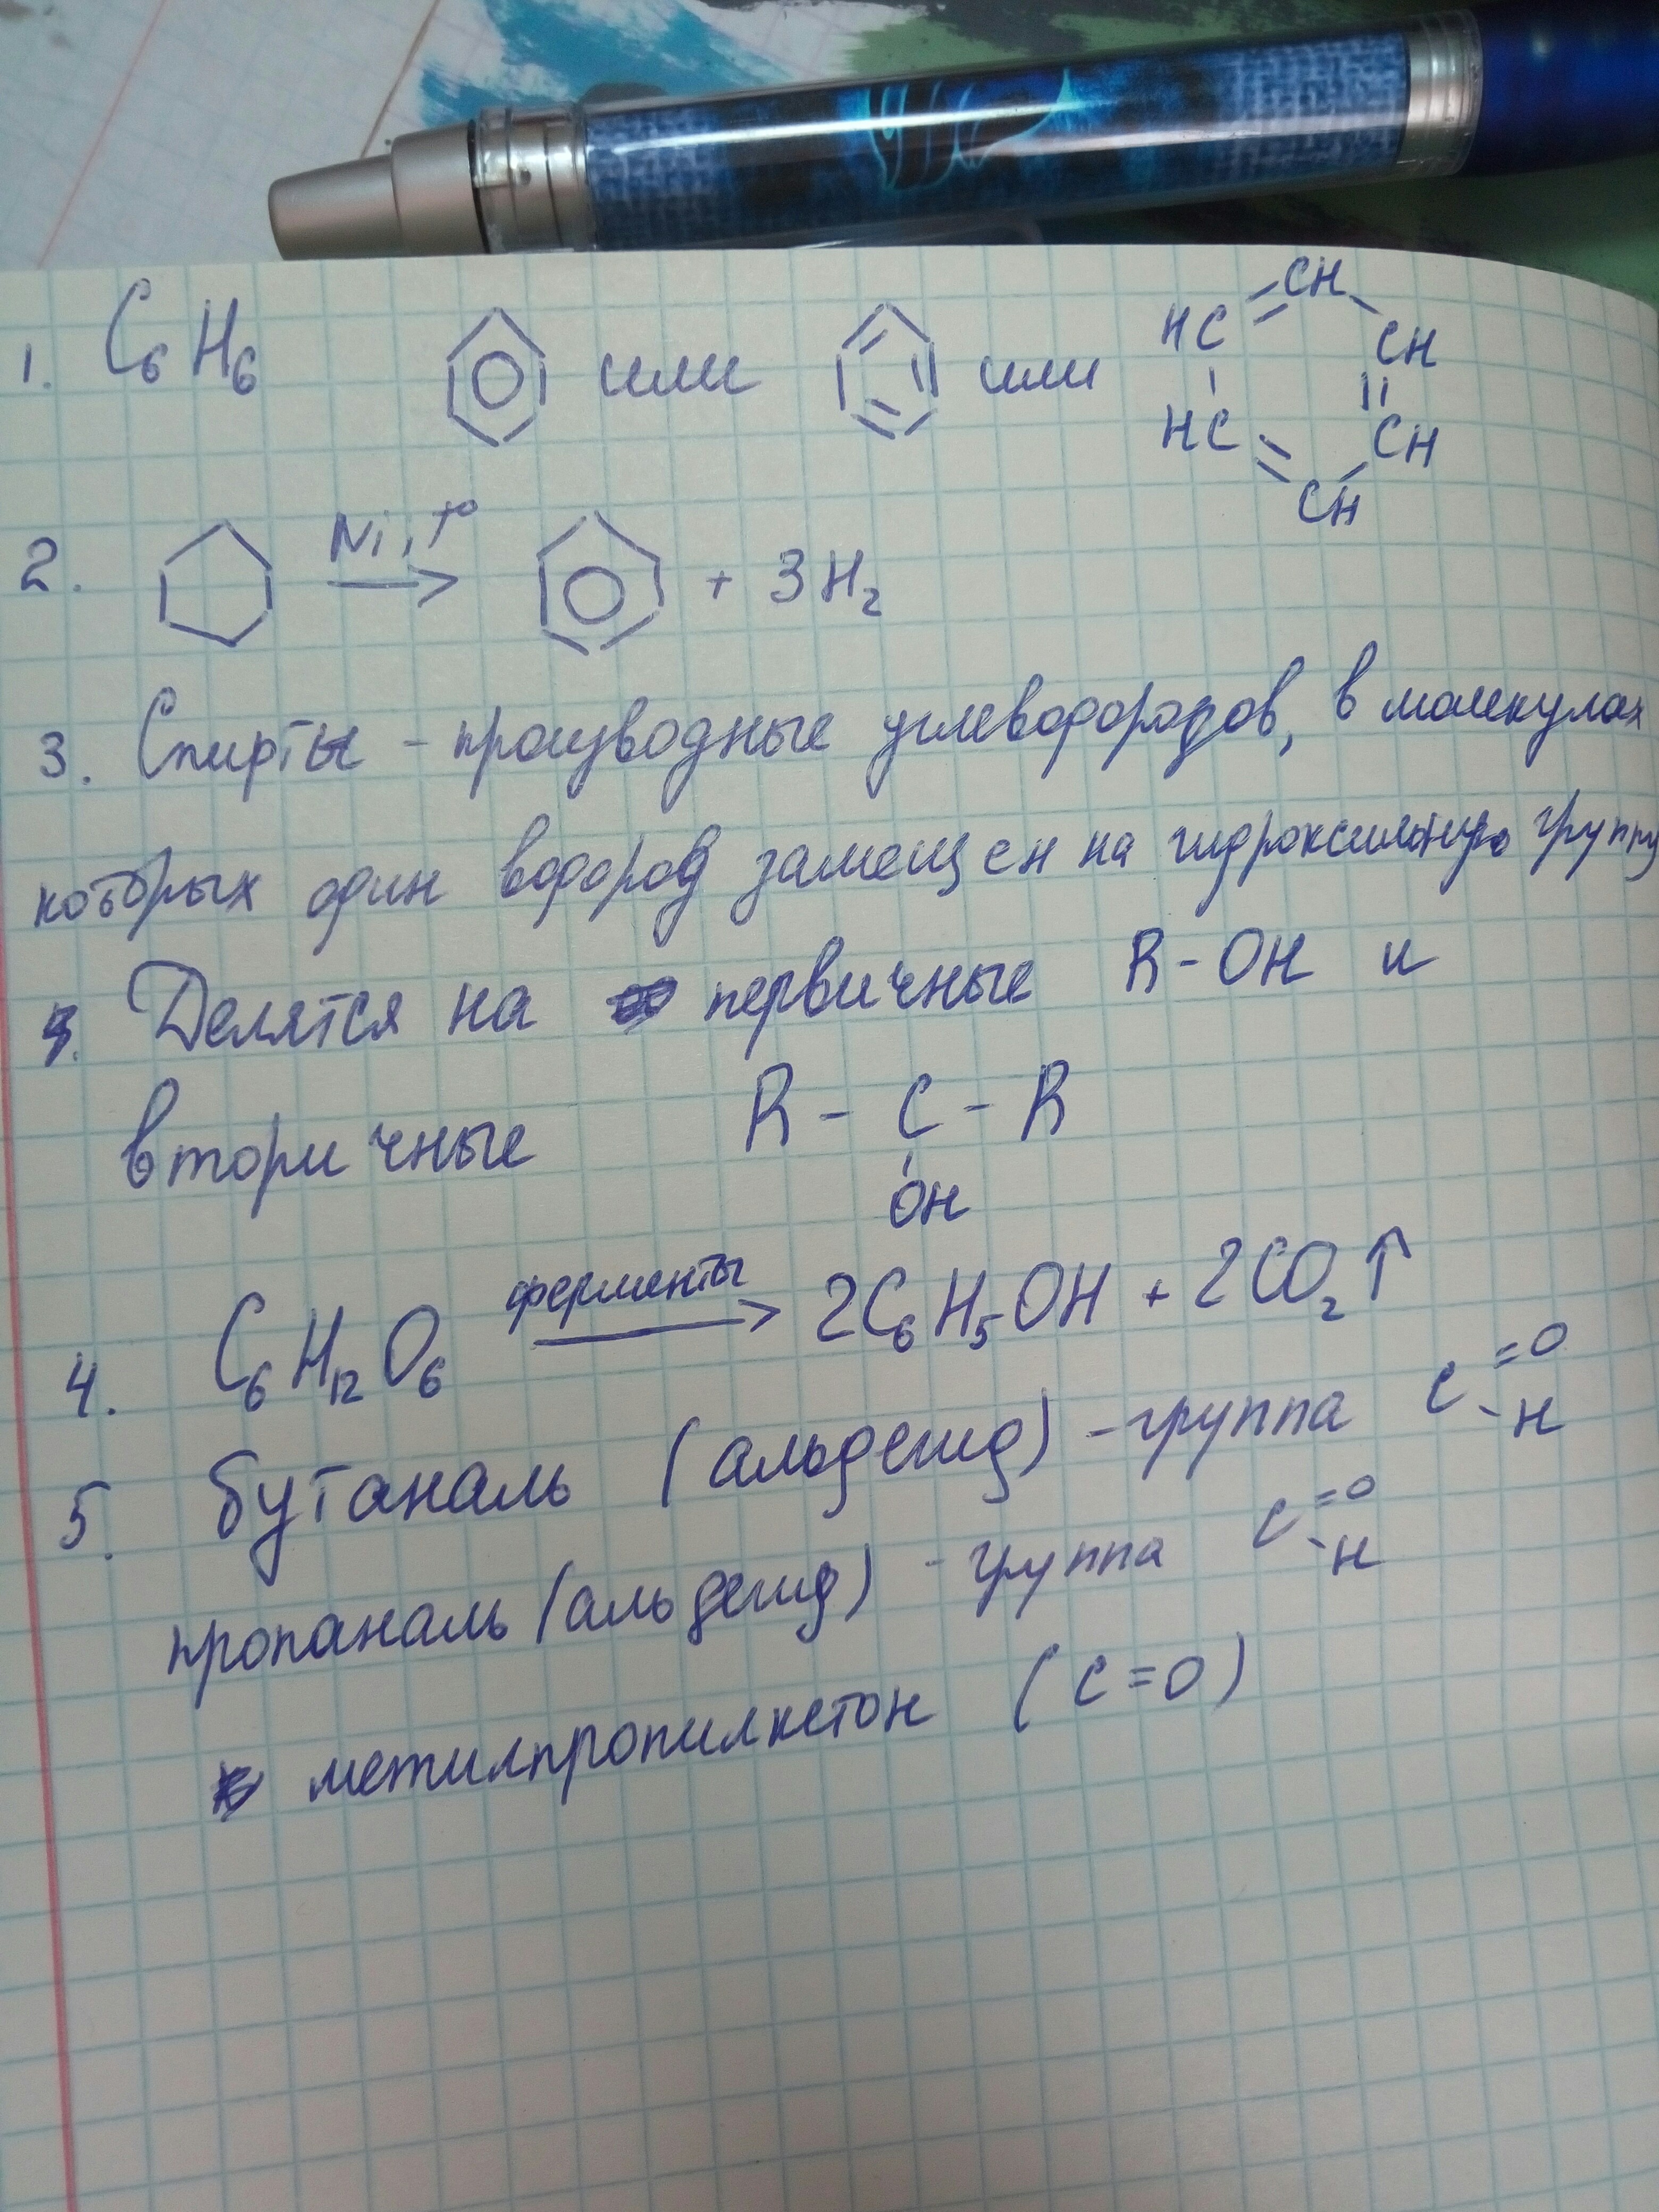 1. C₆H₆ или или HC = CH - CH
HC = CH - CH
2. Ni, t° → + 3H₂
3. Спирты - производные углеводородов, в молекулах
которых один водород замещен на гидроксильную группу
Делятся на первичные R-OH и
вторичные R - C - R
OH
4. C₆H₁₂O₆ ферменты → 2C₆H₅OH + 2CO₂↑
5. бутаналь (альдегид) - группа C =O -H
пропаналь (альдегид) - группа C =O -H
метилпропилкетон (C=O)